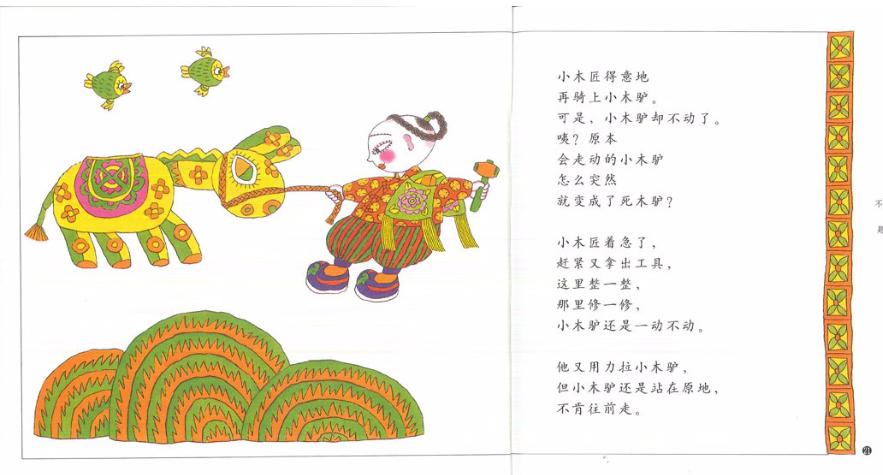 小木匠得意地
再骑上小木驴。
可是，小木驴却不动了。
咦？原本
会走动的小木驴
怎么突然
就变成了死木驴？
小木匠着急了，
赶紧又拿出工具，
这里整一整，
那里修一修，
小木驴还是一动不动。
他又用力拉小木驴，
但小木驴还是站在原地，
不肯往前走。
不
是
21